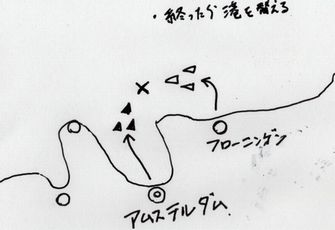 ・終ったら港を替える
フローニンゲン
アムステルダム